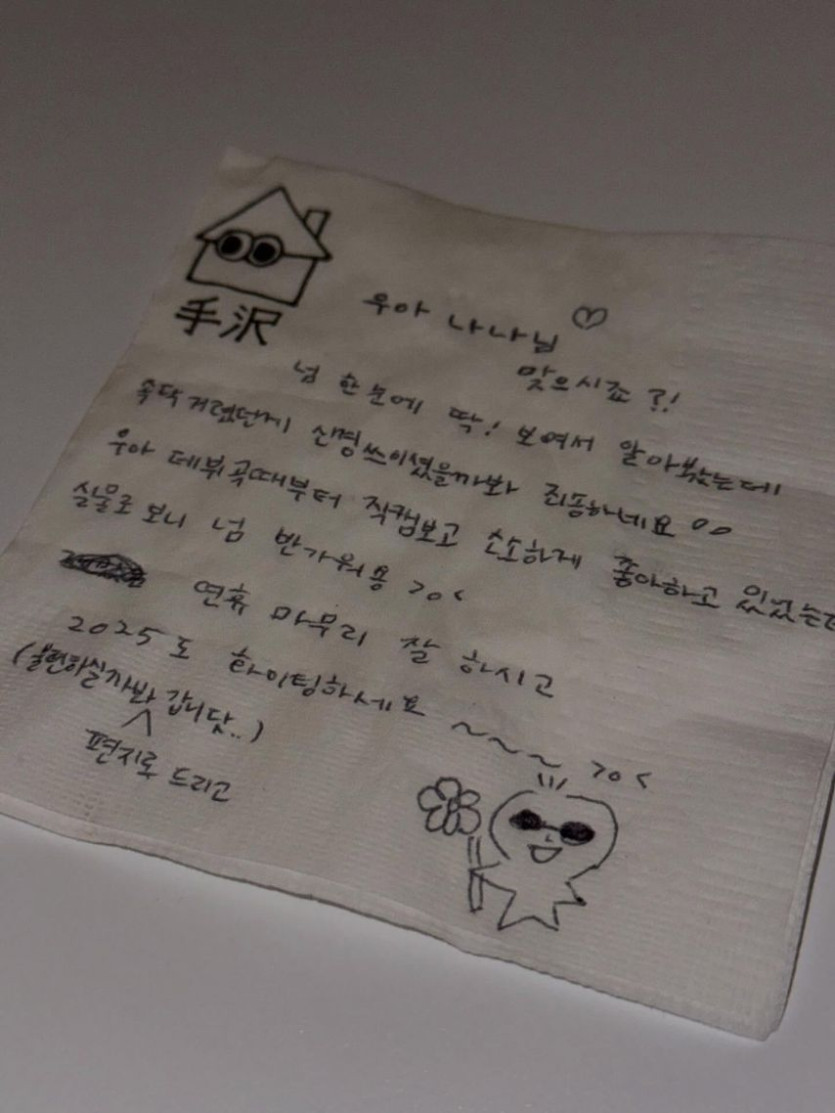 手沢
우아 나나님 ♡
맞으시죠?!
넘 한눈에 딱! 보여서 알아봤는데
속닥거렸던게 신경쓰이셨을까봐 죄송하네요ㅇㅇ
우아 데뷔곡때부터 직캠보고 소소하게 좋아하고 있었는데
실물로 보니 넘 반가워용 >o<
연휴 마무리 잘 하시고
2025도 화이팅하세요 ~~~~ >o<
(불편하실까봐 갑니닷..)
편지로 드리고